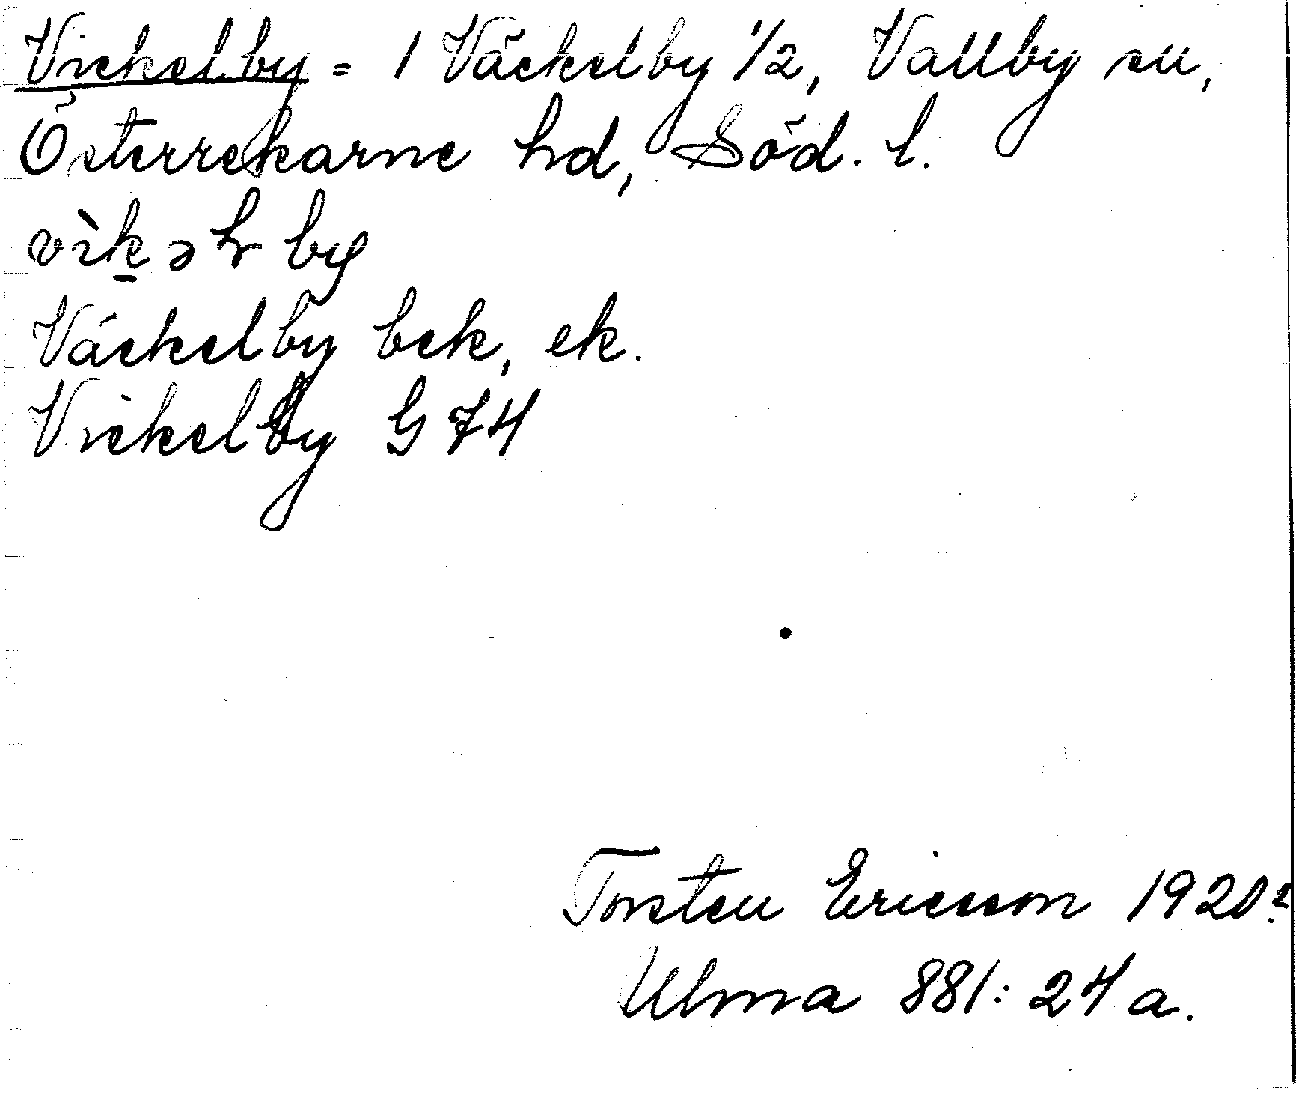 Vickelby = 1 Väckelby 1/2, Vallby sn,
Österrekarne hd, Söd. l.
Väckelby bek, ek.
Vickelby G 74
Torsten Ericsson 1920?
Ulma 881:24a.